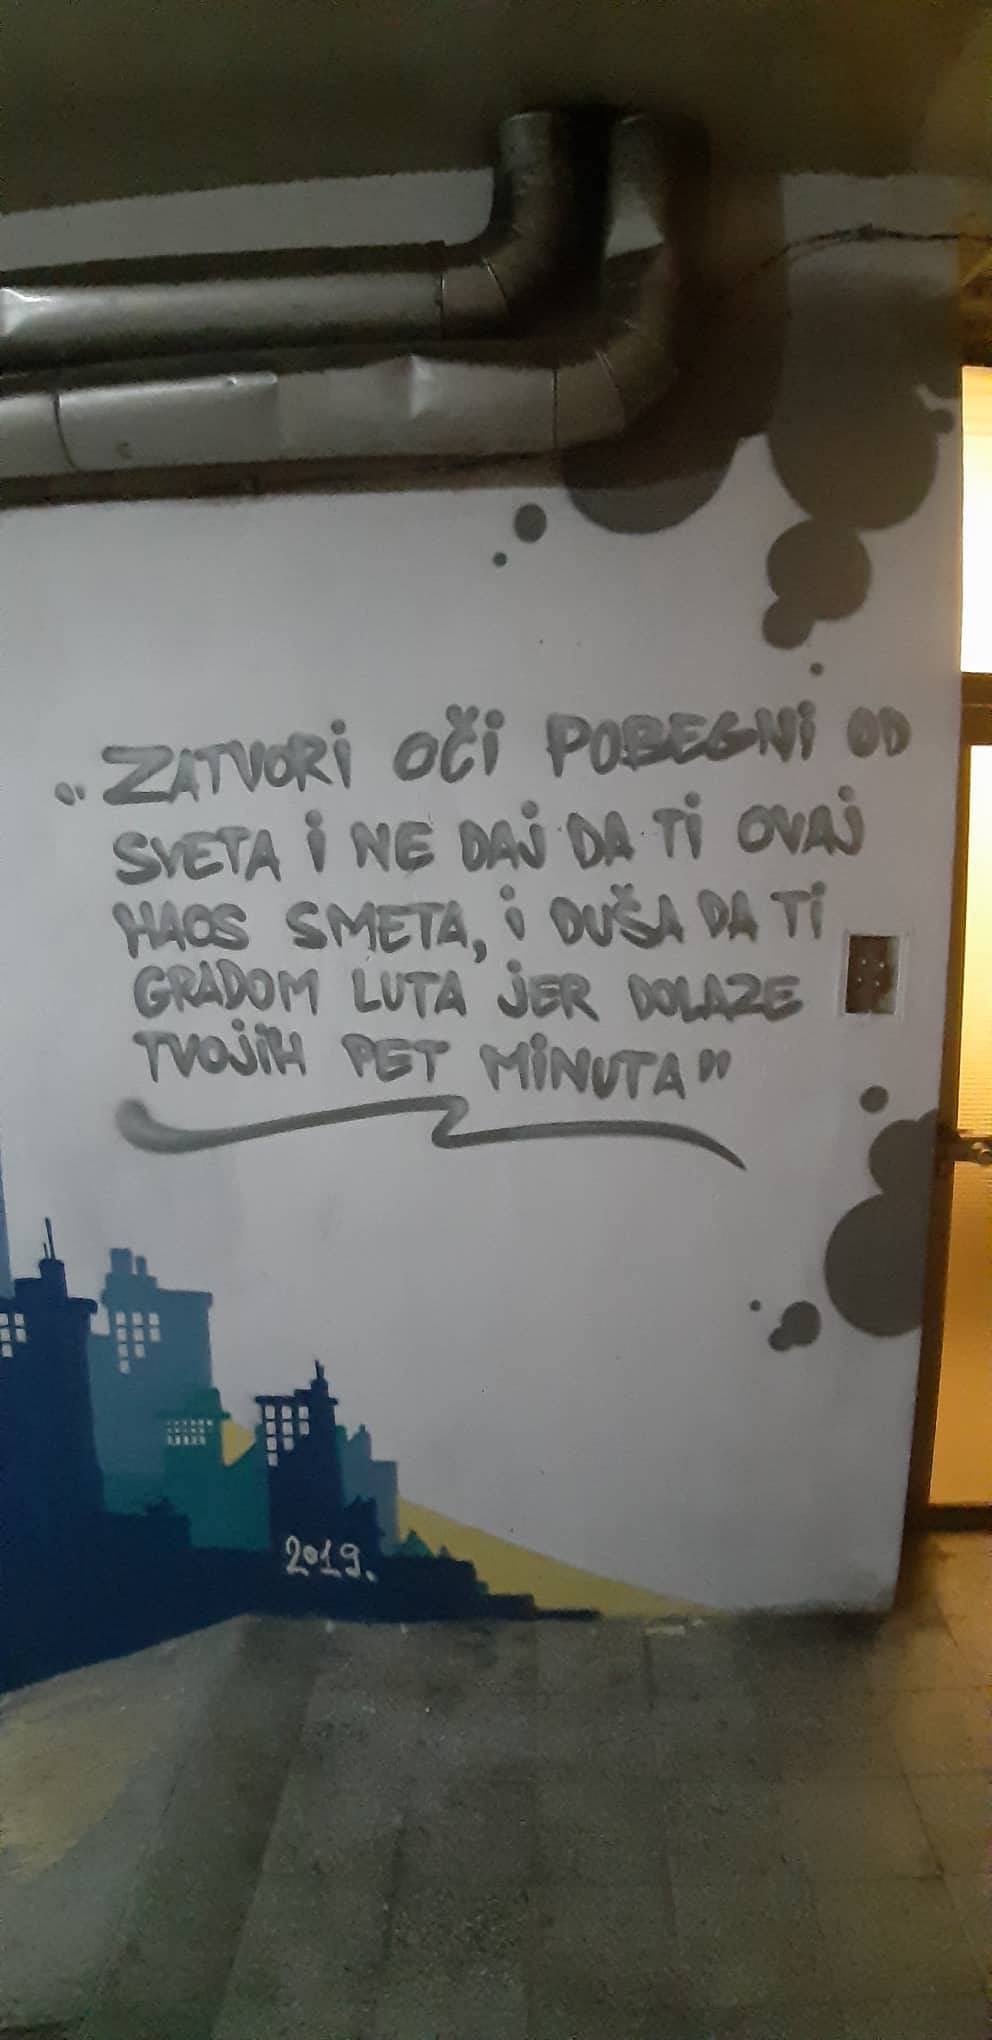 „ZATVORi OČi POBEGNi OD
SVETA i NE DAJ DA Ti OVAJ
HAOS SMETA, i DUŠA DA Ti
GRADOM LUTA JER DOLAZE
TVOJiH PET MiNUTA”
2019.